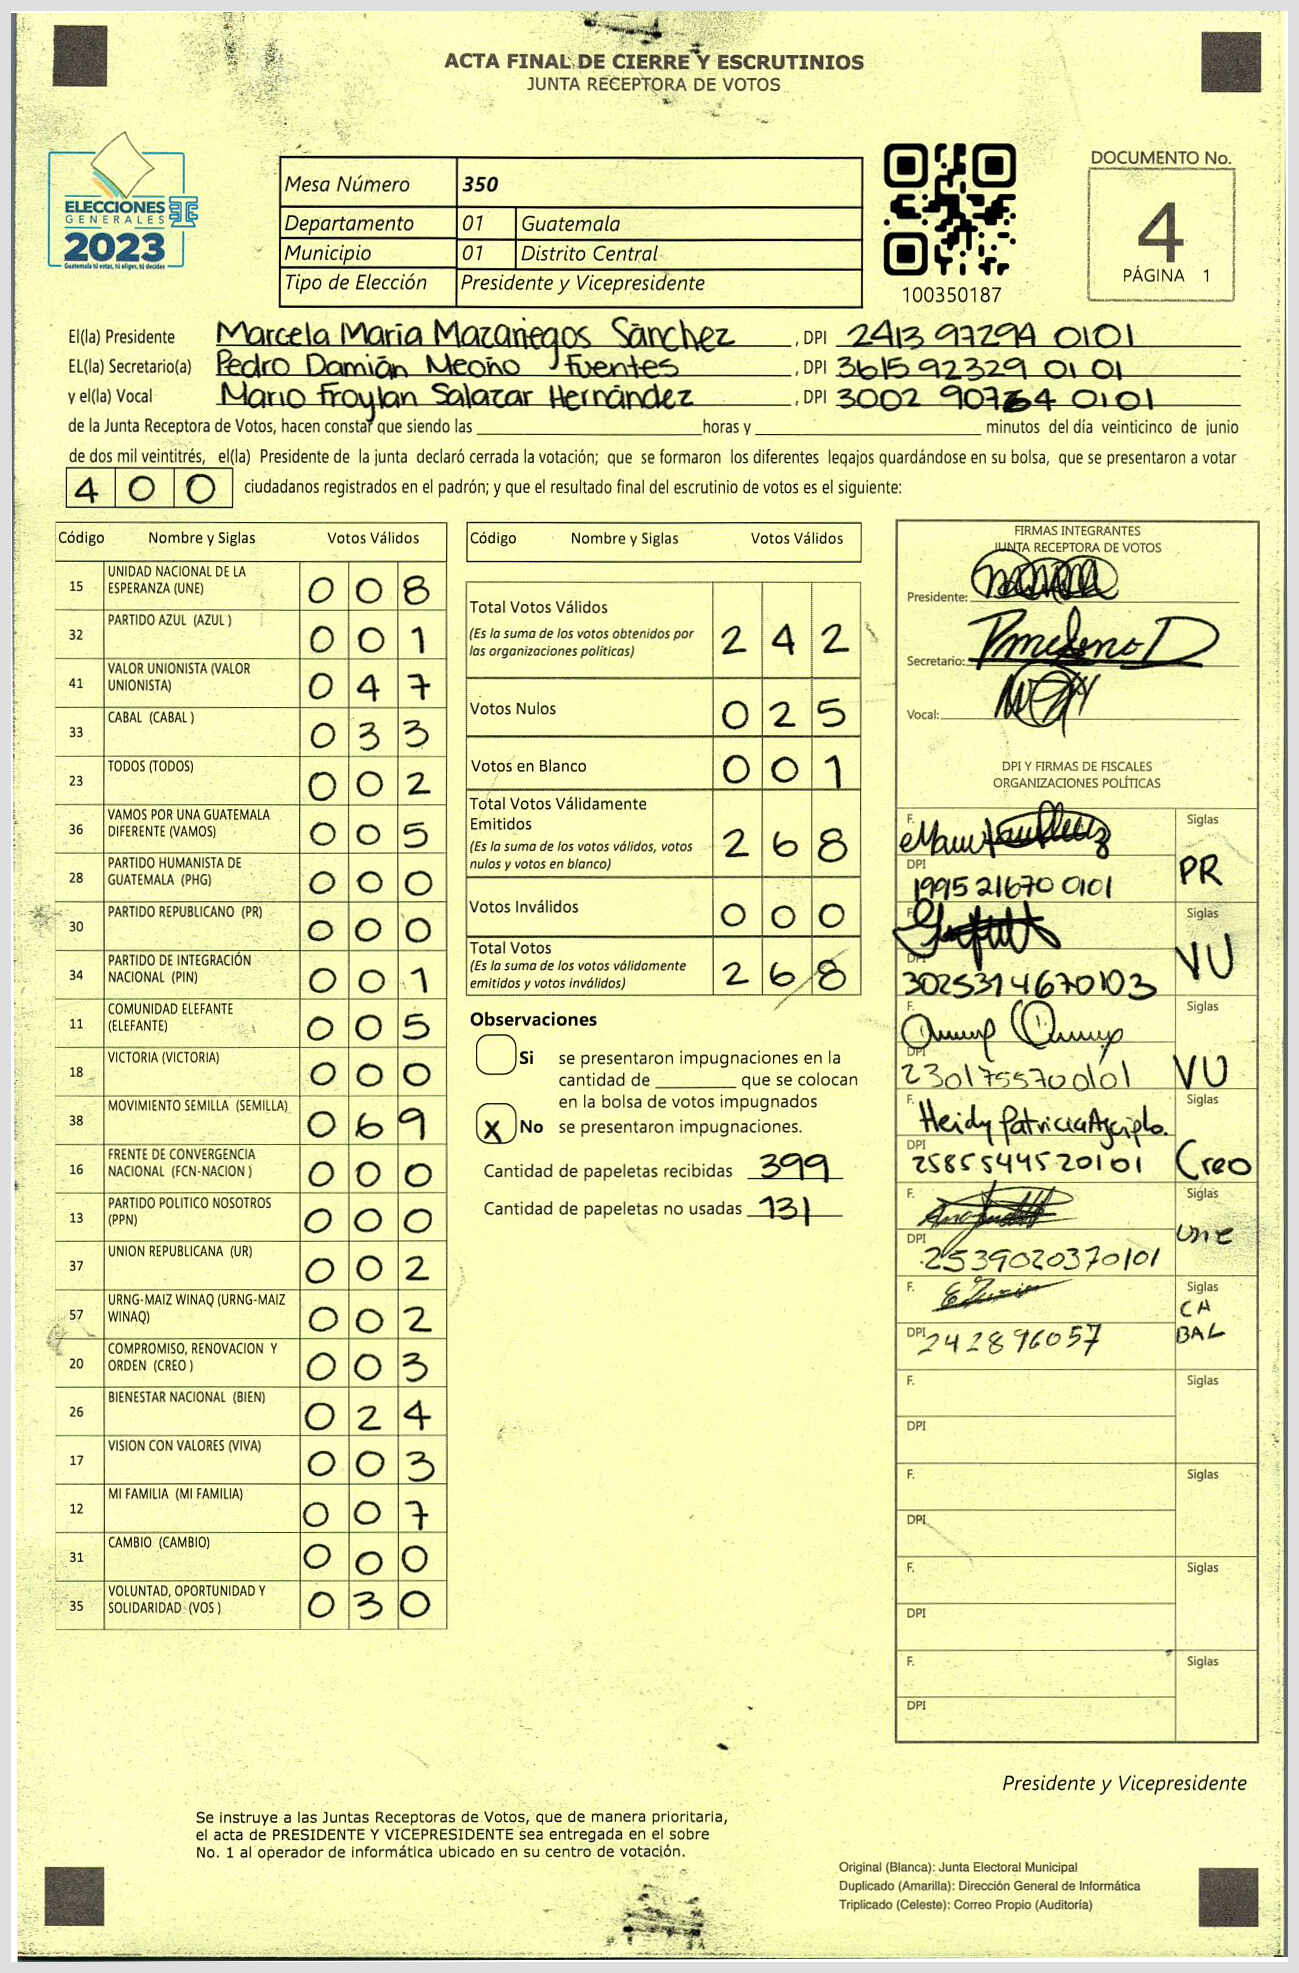 ACTA FINAL DE CIERRE Y ESCRUTINIOS
JUNTA RECEPTORA DE VOTOS
ELECCIONES
GENERALES
2023
Guatemala tú votas, tú eliges, tú decides
Mesa Número 350
Departamento 01 Guatemala
Municipio 01 Distrito Central
Tipo de Elección Presidente y Vicepresidente
100350187
DOCUMENTO No.
4
PÁGINA 1
El(la) Presidente Marcela María Mazariegos Sánchez, DPI 2413 97294 0101
EL(la) Secretario(a) Pedro Damián Meoño Fuentes, DPI 3615 92329 01 01
y el(la) Vocal Mario Froylan Salazar Hernández, DPI 3002 0101
de la Junta Receptora de Votos, hacen constar que siendo las ____ horas y ____ minutos del día veinticinco de junio
de dos mil veintitrés, el(la) Presidente de la junta declaró cerrada la votación; que se formaron los diferentes legajos quardándose en su bolsa, que se presentaron a votar
4 0 0 ciudadanos registrados en el padrón; y que el resultado final del escrutinio de votos es el siguiente:
Código Nombre y Siglas Votos Válidos
15 UNIDAD NACIONAL DE LA ESPERANZA (UNE) 0 0 8
32 PARTIDO AZUL (AZUL ) 0 0 1
41 VALOR UNIONISTA (VALOR UNIONISTA) 0 4 7
33 CABAL (CABAL ) 0 3 3
23 TODOS (TODOS) 0 0 2
36 VAMOS POR UNA GUATEMALA DIFERENTE (VAMOS) 0 0 5
28 PARTIDO HUMANISTA DE GUATEMALA (PHG) 0 0 0
30 PARTIDO REPUBLICANO (PR) 0 0 0
34 PARTIDO DE INTEGRACIÓN NACIONAL (PIN) 0 0 1
11 COMUNIDAD ELEFANTE (ELEFANTE) 0 0 5
18 VICTORIA (VICTORIA) 0 0 0
38 MOVIMIENTO SEMILLA (SEMILLA) 0 6 9
16 FRENTE DE CONVERGENCIA NACIONAL (FCN-NACION ) 0 0 0
13 PARTIDO POLITICO NOSOTROS (PPN) 0 0 0
37 UNION REPUBLICANA (UR) 0 0 2
57 URNG-MAIZ WINAQ (URNG-MAIZ WINAQ) 0 0 2
20 COMPROMISO, RENOVACION Y ORDEN (CREO ) 0 0 3
26 BIENESTAR NACIONAL (BIEN) 0 2 4
17 VISION CON VALORES (VIVA) 0 0 3
12 MI FAMILIA (MI FAMILIA) 0 0 7
31 CAMBIO (CAMBIO) 0 0 0
35 VOLUNTAD, OPORTUNIDAD Y SOLIDARIDAD (VOS ) 0 3 0
Código Nombre y Siglas Votos Válidos
Total Votos Válidos 2 4 2
(Es la suma de los votos obtenidos por
las organizaciones politicas)
Votos Nulos 0 2 5
Votos en Blanco 0 0 1
Total Votos Válidamente
Emitidos 2 6 8
(Es la suma de los votos válidos, votos
nulos y votos en blanco)
Votos Inválidos 0 0 0
Total Votos 2 6 8
(Es la suma de los votos válidamente
emitidos y votos inválidos)
Observaciones
Si se presentaron impugnaciones en la
cantidad de ____ que se colocan
en la bolsa de votos impugnados
X No se presentaron impugnaciones.
Cantidad de papeletas recibidas 399
Cantidad de papeletas no usadas 131
FIRMAS INTEGRANTES
JUNTA RECEPTORA DE VOTOS
Presidente:
Secretario:
Vocal:
DPI Y FIRMAS DE FISCALES
ORGANIZACIONES POLÍTICAS
F. Siglas
DPI 1995 21670 0101 PR
F. Siglas
DPI 3025314670103 VU
F. Siglas
DPI 2301755700101 VU
F. Heidy Patricia Siglas
DPI 2585544520101 Creo
F. Siglas
DPI 2539020370101 une
F. Siglas
DPI 242896057 CABAL
F. Siglas
DPI
F. Siglas
DPI
F. Siglas
DPI
F. Siglas
DPI
Presidente y Vicepresidente
Se instruye a las Juntas Receptoras de Votos, que de manera prioritaria,
el acta de PRESIDENTE Y VICEPRESIDENTE sea entregada en el sobre
No. 1 al operador de informática ubicado en su centro de votación.
Original (Blanca): Junta Electoral Municipal
Duplicado (Amarilla): Dirección General de Informática
Triplicado (Celeste): Correo Propio (Auditoría)